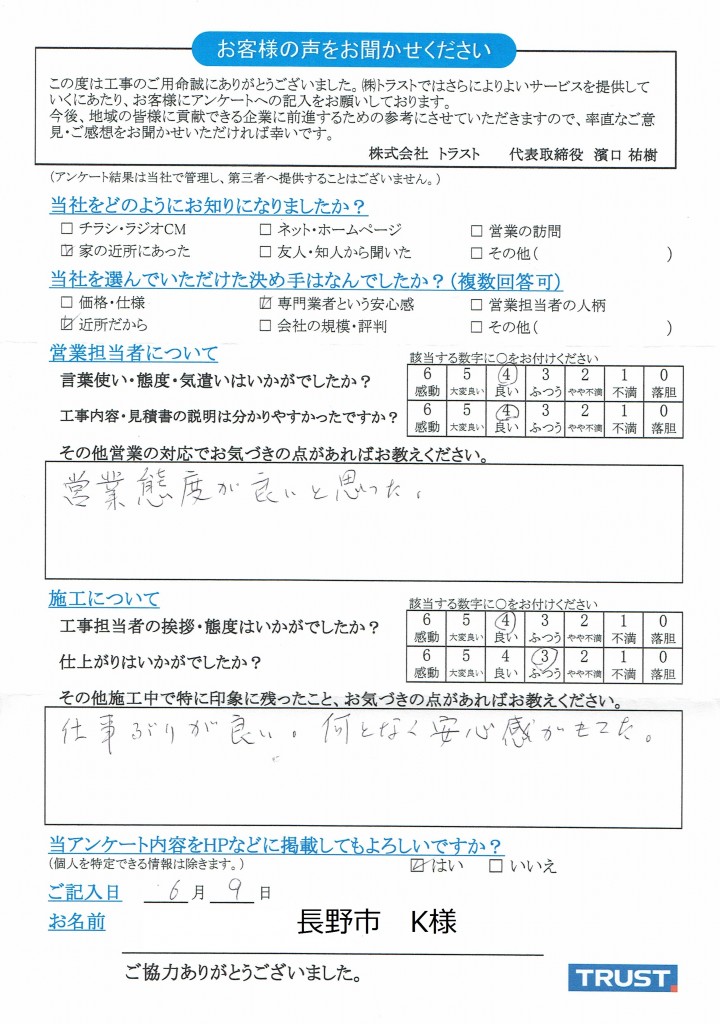 お客様の声をお聞かせください
この度は工事のご用命誠にありがとうございました。㈱トラストではさらによりよいサービスを提供して
いくにあたり、お客様にアンケートへの記入をお願いしております。
今後、地域の皆様に貢献できる企業に前進するための参考にさせていただきますので、率直なご意
見・ご感想をお聞かせいただければ幸いです。
株式会社 トラスト 代表取締役 濱口 祐樹
(アンケート結果は当社で管理し、第三者へ提供することはございません。)
当社をどのようにお知りになりましたか？
□ チラシ・ラジオCM □ ネット・ホームページ □ 営業の訪問
☑ 家の近所にあった □ 友人・知人から聞いた □ その他( )
当社を選んでいただけた決め手はなんでしたか？(複数回答可)
□ 価格・仕様 ☑ 専門業者という安心感 □ 営業担当者の人柄
☑ 近所だから □ 会社の規模・評判 □ その他( )
営業担当者について 該当する数字に○をお付けください
言葉使い・態度・気遣いはいかがでしたか？ 6 5 4 3 2 1 0
感動 大変良い 良い ふつう やや不満 不満 落胆
工事内容・見積書の説明は分かりやすかったですか？ 6 5 4 3 2 1 0
感動 大変良い 良い ふつう やや不満 不満 落胆
その他営業の対応でお気づきの点があればお教えください。
営業態度が良いと思った。
施工について 該当する数字に○をお付けください
工事担当者の挨拶・態度はいかがでしたか？ 6 5 4 3 2 1 0
感動 大変良い 良い ふつう やや不満 不満 落胆
仕上がりはいかがでしたか？ 6 5 4 3 2 1 0
感動 大変良い 良い ふつう やや不満 不満 落胆
その他施工中で特に印象に残ったこと、お気づきの点があればお教えください。
仕事ぶりが良い。何となく安心感がもてた。
当アンケート内容をHPなどに掲載してもよろしいですか？
(個人を特定できる情報は除きます。) ☑ はい □ いいえ
ご記入日 6 月 9 日
お名前 長野市 K様
ご協力ありがとうございました。
TRUST